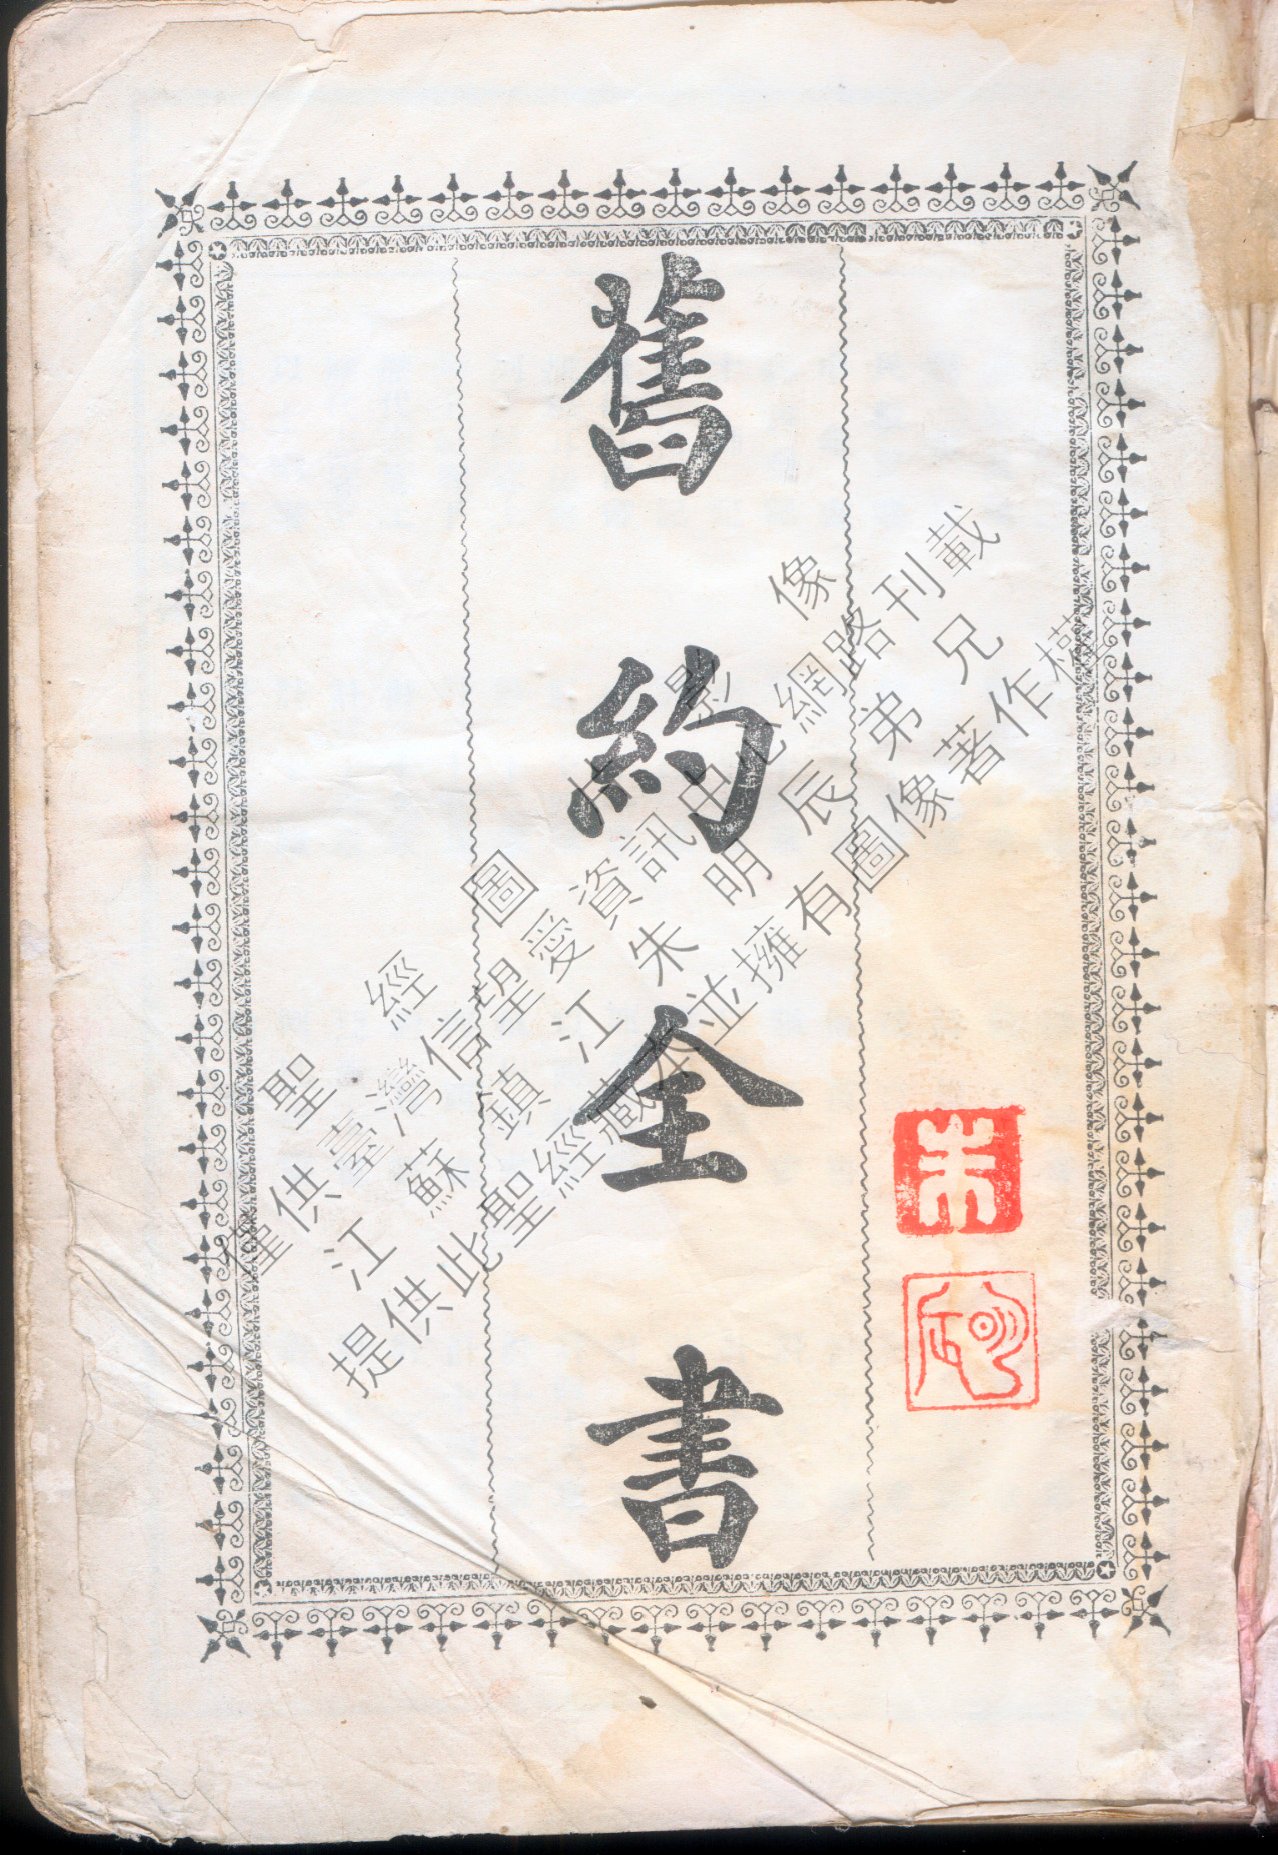 舊約全書
聖經圖片影像
僅供臺灣信望愛資訊中心網路刊載
江蘇鎮江朱明辰弟兄
提供此聖經藏本並擁有圖像著作權
朱